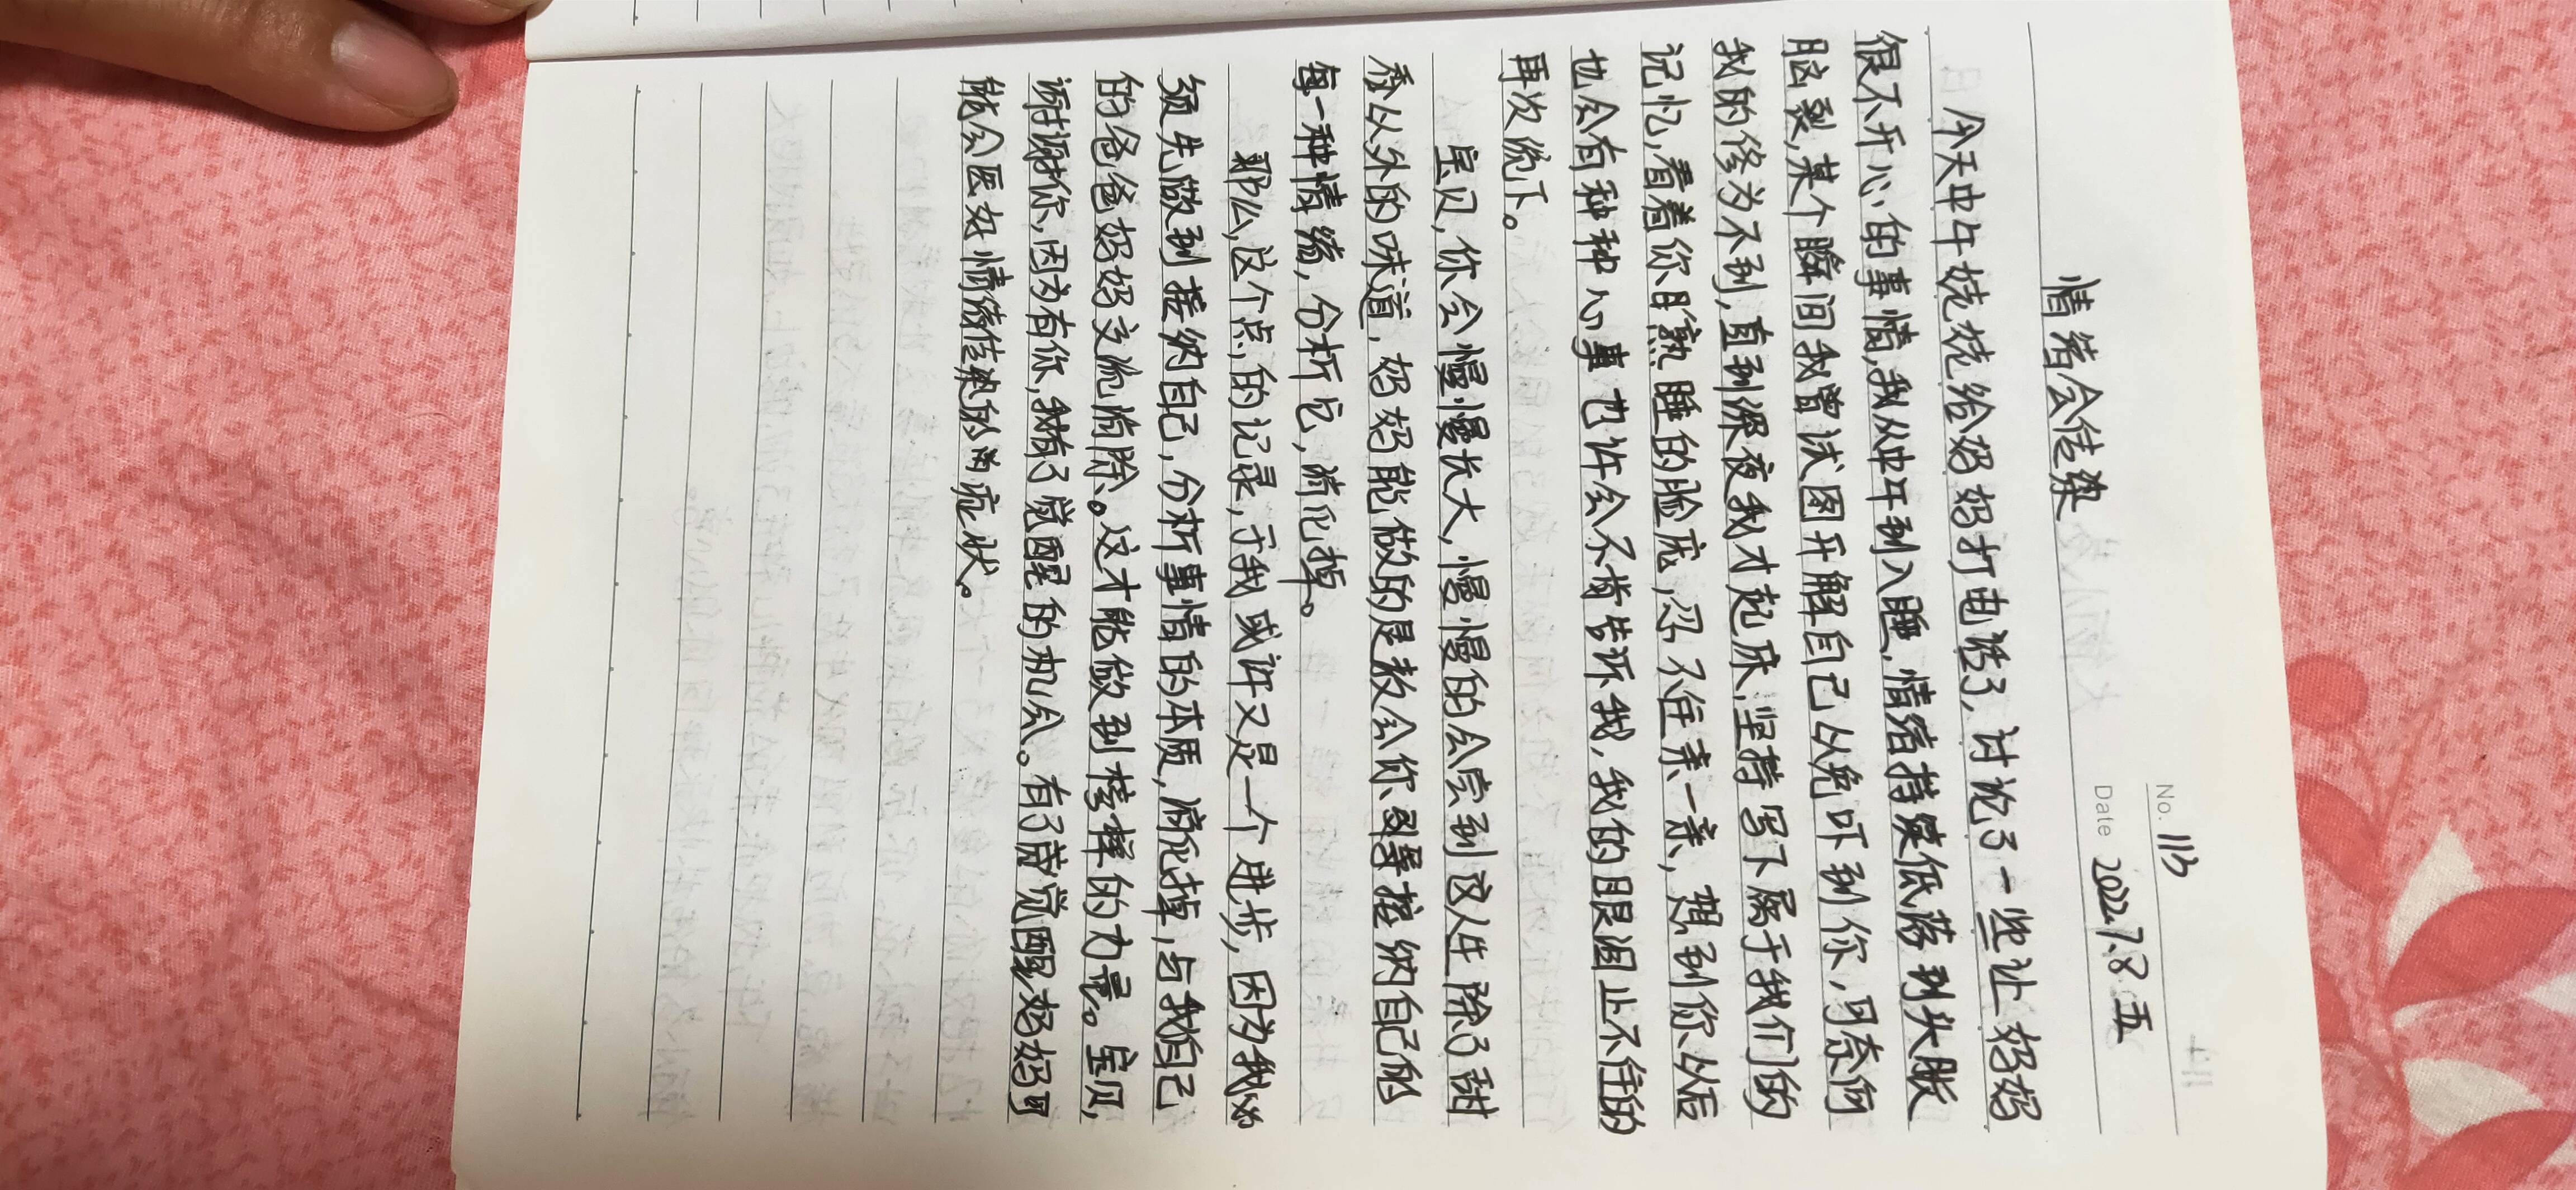 No. 113
Date 2022.7.8 五
情绪会传染
今天中午娆娆给妈妈打电话了，讨论了一些让妈妈
很不开心的事情，我从中午到入睡，情绪持续低落到头胀
脑裂，某个瞬间我曾试图开解自己以免吓到你，可奈何
我的修为不到，直到深夜我才起床，坚持写下属于我们的
记忆，看着你日熟睡的脸庞，忍不住亲一亲，想到你以后
也会有种种心事也许会不肯告诉我，我的眼泪止不住的
再次流下。
宝贝，你会慢慢长大，慢慢的会尝到这人生除了甜
香以外的味道，妈妈能做的是教会你接纳自己的
每一种情绪，分析它，消化掉。
那么，这个点，的记录，于我或许又是一个进步，因为我必
须先做到接纳自己，分析事情的本质，消化掉，与我自己
的爸爸妈妈交流消除。这才能做到榜样的力量。宝贝，
谢谢你，因为有你，我有了觉醒的机会。有了觉醒，妈妈可
能会医好情绪传染的症状。